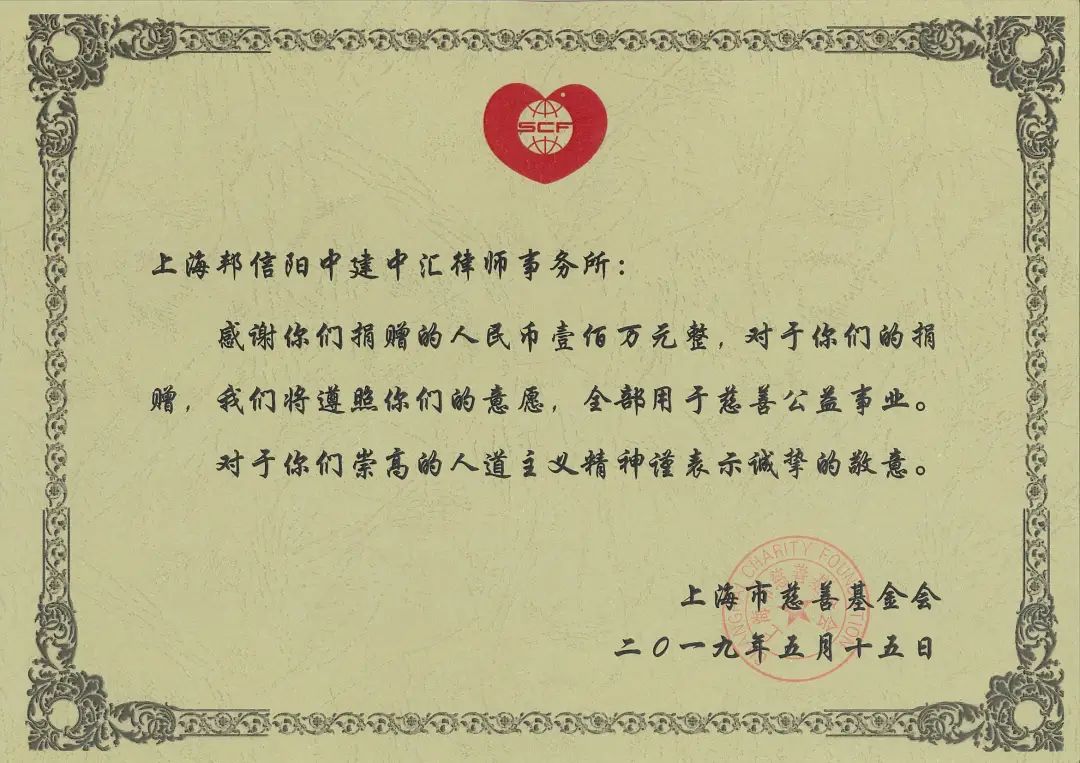 SCF
上海邦信阳中建中汇律师事务所：
感谢你们捐赠的人民币壹佰万元整，对于你们的捐
赠，我们将遵照你们的意愿，全部用于慈善公益事业。
对于你们崇高的人道主义精神谨表示诚挚的敬意。
CHARITY FOUNDATION
上海市慈善基金会
二〇一九年五月十五日